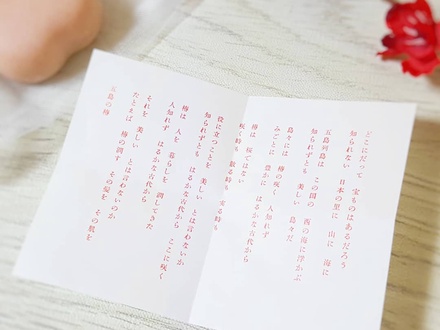 どこにだって 宝ものはあるだろう
知られない 日本の里に 山に 海に
五島列島は この国の 西の海に浮かぶ
知られずとも 美しい 島々だ
島々には 椿の咲く 人知れず
みごとに 豊かに はるかな古代から
椿は 桜ではない
咲く時も 散る時も 実る時も
役に立つことを
知られずとも 美しい とは言わないか
椿は 人を 暮らしを 潤してきた
人知れず はるかな古代から ここに咲く
それを 美しい とは言わないのか
たとえば 椿の潤す その髪を その肌を
五島の椿